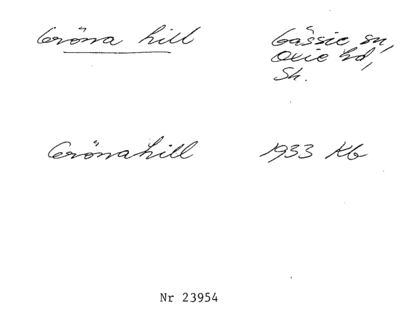 Gröna hill
Gässie sn,
Oxie hd,
Sk.
Grönahill
1933 Kb
Nr 23954